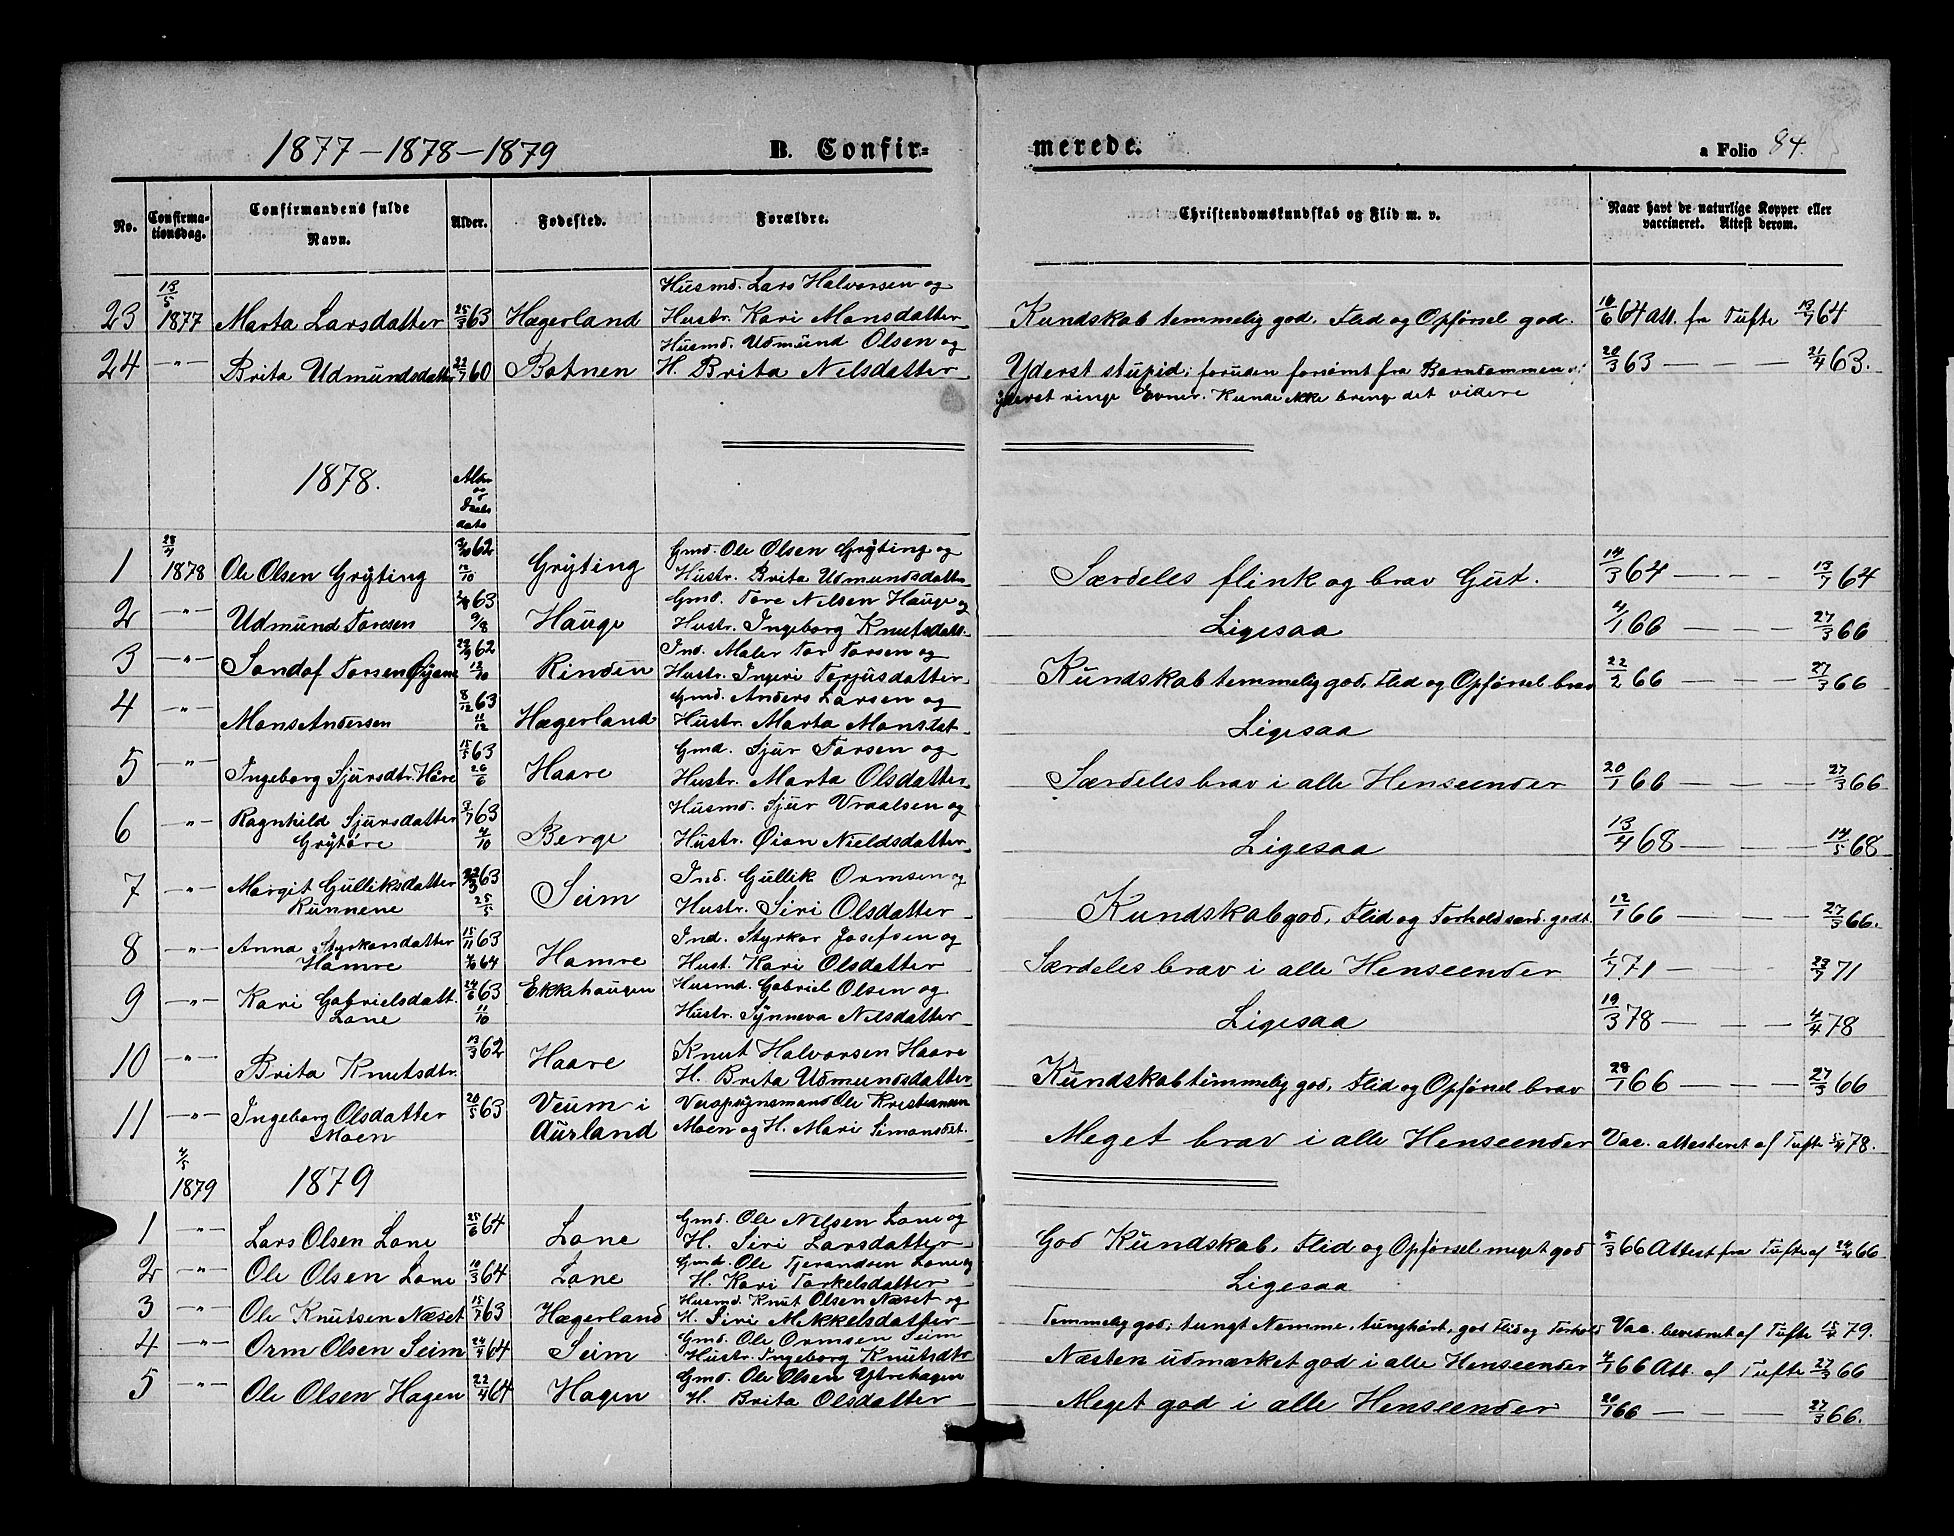 1877-1878-1879 B. Confir= merede. a Folio 84.
No. Confirma-tionsdag. Confirmandens fulde Navn. Alder. Fødested. Forældre. Christendomskundskab og Flid m. v. Naar havt de naturlige Kopper eller vaccineret. Attest derom.
13/5 Husmd. Lars Halvorsen og
23 1877 Marta Larsdatter 25/3 63 Hægerland Hustr. Kari Monsdatter Kundskab temmelig god. Flid og Opførsel god. 16/6 64 Att. fra Tufte 13/7 64
Husmd. Udmund Olsen og
24 -"- Brita Udmundsdatter 22/7 60 Botnen H. Brita Nilsdatter Yderst stupid; foruden forsømt fra Barndommen 20/3 63 — — — 21/4 63.
yderst ringe Evner. Kunde ikke bringe det videre
1878. Alder og Daabs dato
28/4 62 Gmd. Ole Olsen Grÿting og
1 1878 Ole Olsen Grÿting 12/10 Grÿting Hustr. Brita Udmundsdatter Særdeles flink og brav Gut. 14/3 64 — — - 13/7 64
63 Gmd. Tore Nilsen Hauge og
2 -"- Udmund Toresen 9/8 Hauge Hustr. Ingeborg Knutsdatt. Ligesaa 4/1 66 — — - 27/3 66
62 Ind. Maler Tor Torsen og
3 -"- Sondof Torsen Øjane 12/10 Rinden Hustr. Ingeri Torjusdatter Kundskab temmelig god, Flid og Opførsel brav 22/2 66 27/3 66
8/12 63 Gmd. Anders Larsen og
4 -"- Mons Andersen 11/12 Hægerland Hustr. Marta Monsdat. Ligesaa
15/5 63 Gmd. Sjur Torsen og
5 -"- Ingeborg Sjursdtr. Håre 26/6 Haare Hustr. Marta Olsdatter Særdeles brav i alle Henseender 20/1 66 — — - 27/3 66
6 -"- Ragnhild Sjursdatter 3/7 63 Husmd. Sjur Vraalsen og
Grÿtøre 4/10 Berge Hustr. Øian Nieldsdatter Ligesaa 13/4 68 — — - 14/5 68
7 -"- Margit Gulliksdatter 63 Ind. Gullik Ormsen og
Runnene 25/5 Seim Hustr. Siri Olsdatter Kundskab god, Flid og Forhold særd. godt. 12/1 66 — — - 27/3 66.
8 -"- Anna Styrkarsdatter 15/11 63 Ind. Styrkar Josefsen og
Hamre 64 Hamre Hust. Kari Olsdatter Særdeles brav i alle Henseender 1/7 71 — — 23/7 71
9 -"- Kari Gabrielsdatt. 24/6 63 Ekkehaugen Husmd. Gabriel Olsen og
Lone 11/10 Hustr. Sÿnneva Nilsdatter Ligesaa 19/3 78 — — - 4/4 78
10 -"- 13/3 62 Knut Halvorsen Haare
Brita Knutsdtr. Haare H. Brita Udmundsdatter Kundskab temmelig god, Flid og Opførsel brav 28/1 66 — — - 27/3 66
11 -"- Ingeborg Olsdatter 20/5 63 Veum i Veiopsynsmand Ole Kristiansen
Moen Aurland Moen og H. Mari Simonsdt. Meget brav i alle Henseender Vac. attesteret af Tufte 5/4 78.
4/5
1879 1879
1 -"- Lars Olsen Lone 25/6 64 Lone Gmd. Ole Nilsen Lone og
H. Siri Larsdatter God Kundskab, Flid og Opførsel meget god 5/3 66 Attest fra Tufte af 66
2 -"- Ole Olsen Lone 10/3 64 Lone Gmd. Ole Tjerandsen Lone og
H. Kari Torkelsdatter Ligesaa
3 -"- Ole Knutsen Næset 15/7 63 Hægerland Husmd. Knut Olsen Næset og
H. Siri Mikkelsdatter Temmelig god; tungt Nemme, tunghørt, god Flid og Forhold Vac. bevidnet af Tufte 79.
4 -"- Orm Olsen Seim 64 Seim Gmd. Ole Ormsen Seim
Hustr. Ingeborg Knutsdtr Næsten udmærket god i alle Henseender 4/1 66 Att. af Tufte 27/3 66
5 -"- Ole Olsen Hagen 22/4 64 Hagen Gmd. Ole Olsen Ytrehagen
H. Brita Olsdatter Meget god i alle Henseender 20/1 66 — — - 27/3 66.